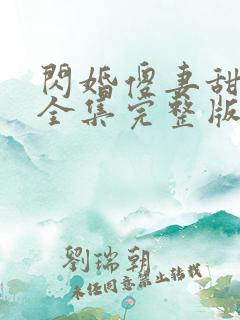 閃婚傻妻甜
全集完整版
劉瑞朝
未経同意禁止转载